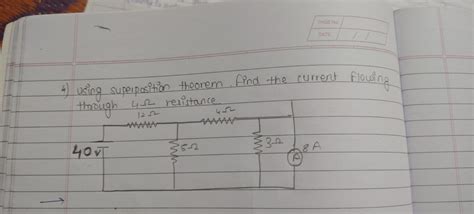 PAGE No.
DATE / /
4) using superposition theorem find the current flowing
through 4Ω resistance
12Ω 4Ω
40v 5Ω 3Ω 8 A